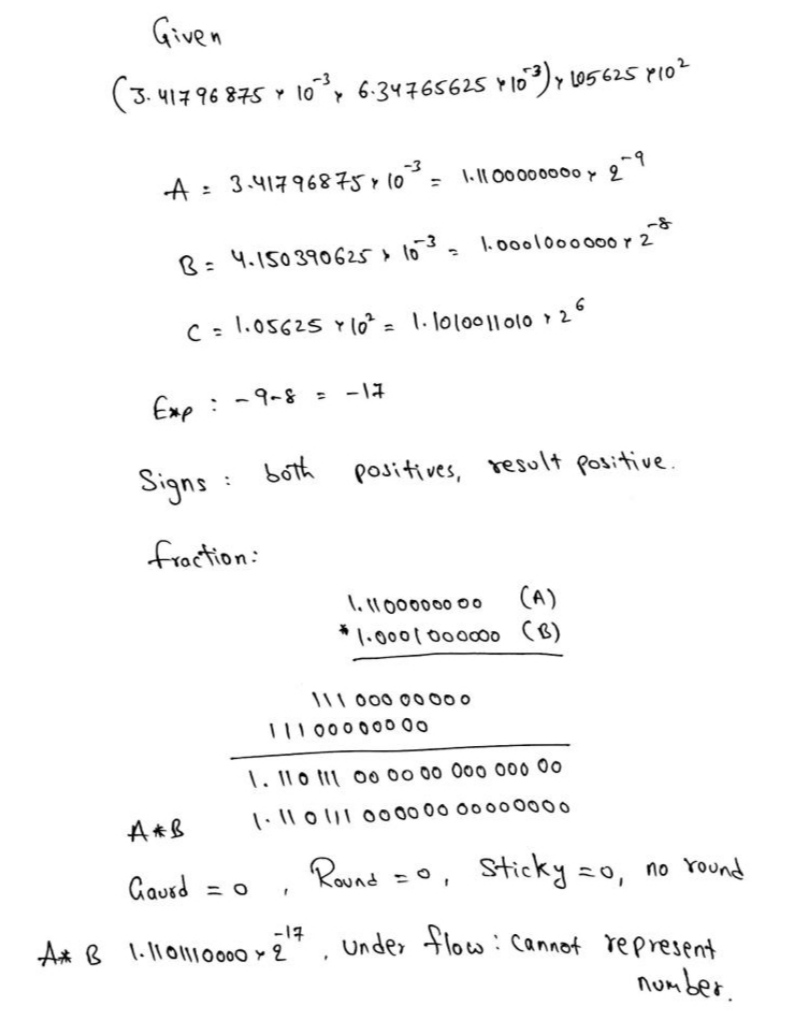 Given
(3.41796875 × 10^-3 × 6.34765625 × 10^-3) × 105625 × 10^2
A = 3.41796875 × 10^-3 = 1.1100000000 × 2^-9
B = 4.150390625 × 10^-3 = 1.0001000000 × 2^-8
C = 1.05625 × 10^2 = 1.1010011010 × 2^6
Exp : -9-8 = -17
Signs : both positives, result positive.
fraction:
1.1100000000 (A)
* 1.0001000000 (B)
11100000000
11100000000
1.11011100000000000000
A*B 1.11011100000000000000
Gaurd = 0 , Round = 0, Sticky = 0, no round
A* B 1.1101110000 × 2^-17 , under flow : cannot represent
number.